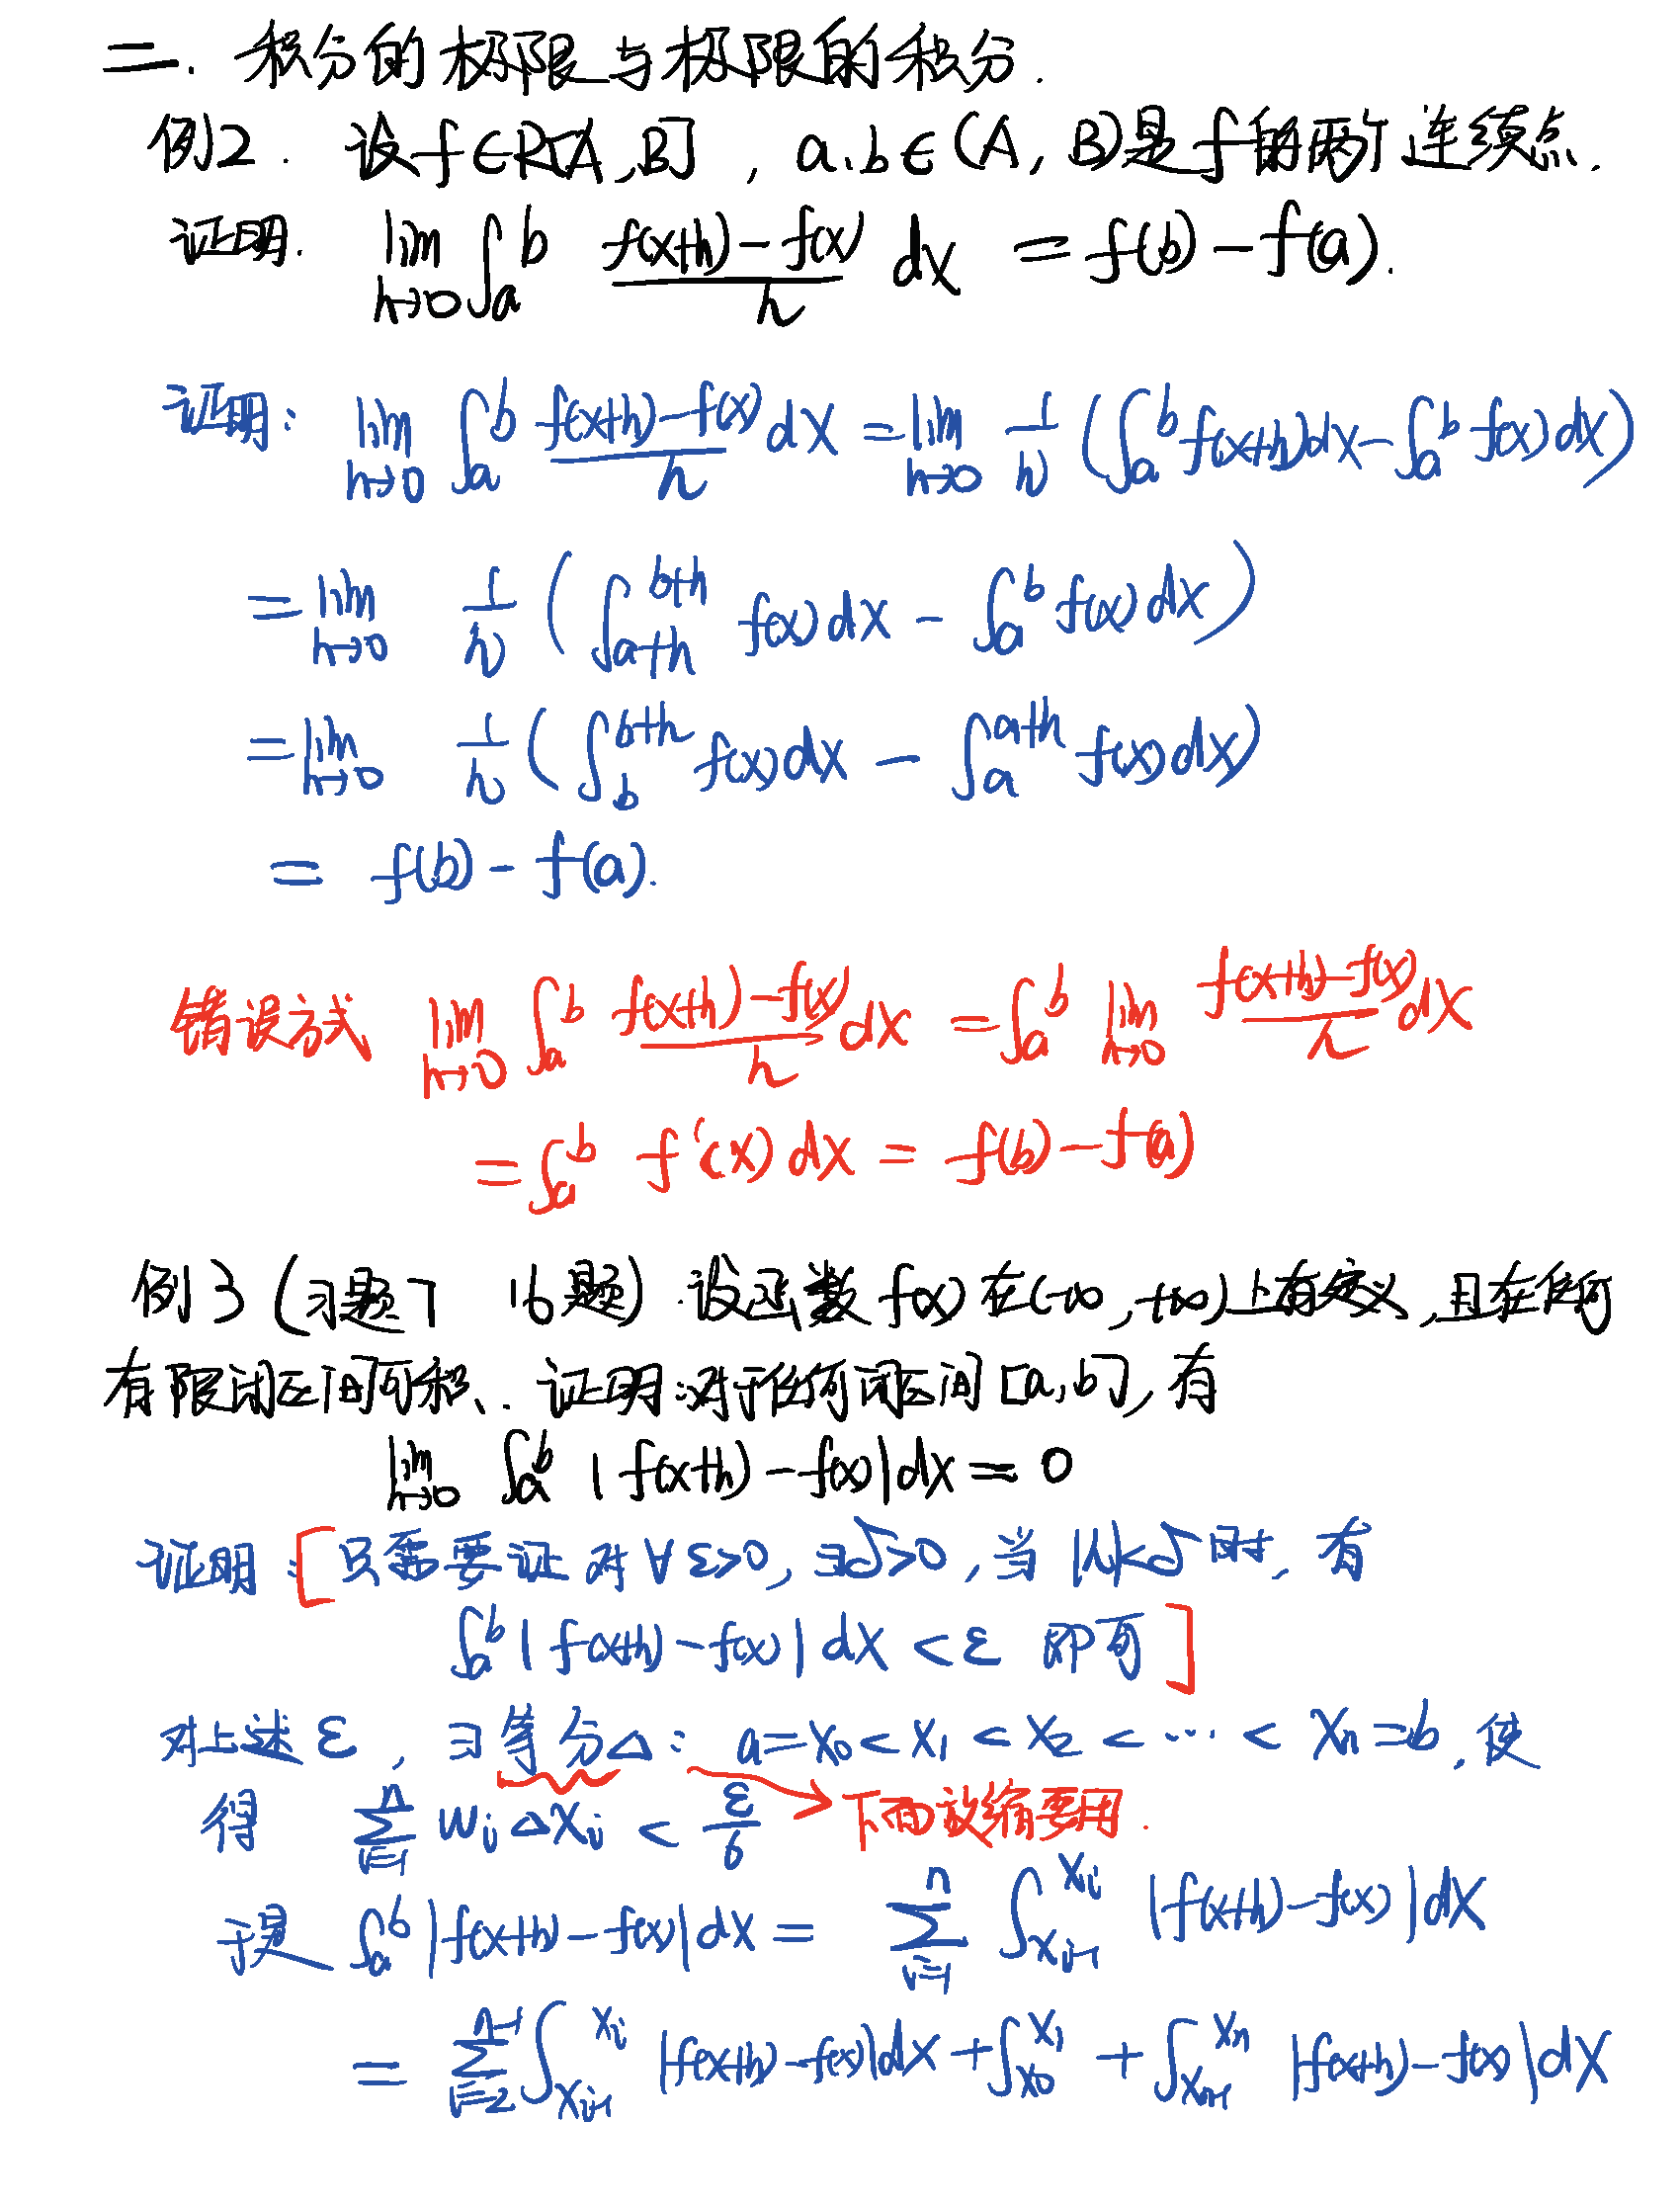 二. 积分的极限与极限的积分.
例2. 设f∈R[A,B], a.b∈(A, B)是f的两个连续点.
证明. lim_{h→0} ∫_a^b (f(x+h)-f(x))/h dx = f(b)-f(a).
证明: lim_{h→0} ∫_a^b (f(x+h)-f(x))/h dx = lim_{h→0} 1/h (∫_a^b f(x+h)dx - ∫_a^b f(x)dx)
= lim_{h→0} 1/h (∫_{a+h}^{b+h} f(x)dx - ∫_a^b f(x)dx)
= lim_{h→0} 1/h (∫_b^{b+h} f(x)dx - ∫_a^{a+h} f(x)dx)
= f(b)-f(a).
错误方式 lim_{h→0} ∫_a^b (f(x+h)-f(x))/h dx = ∫_a^b lim_{h→0} (f(x+h)-f(x))/h dx
= ∫_a^b f'(x)dx = f(b)-f(a)
例3 (习题7 16题). 设函数f(x)在(-∞,+∞)上有定义,且在任何
有限闭区间可积. 证明:对于任何闭区间[a,b],有
lim_{h→0} ∫_a^b |f(x+h)-f(x)|dx = 0
证明: [只需要证 对∀ε>0, ∃δ>0, 当|h|<δ时, 有
∫_a^b |f(x+h)-f(x)|dx < ε 即可]
对上述ε, ∃等分△: a=x_0<x_1<x_2<⋯<x_n=b, 使
得 ∑_{i=1}^n w_i △x_i < ε/6 → 下面放缩要用.
于是 ∫_a^b |f(x+h)-f(x)|dx = ∑_{i=1}^n ∫_{x_{i-1}}^{x_i} |f(x+h)-f(x)|dx
= ∑_{i=2}^{n-1} ∫_{x_{i-1}}^{x_i} |f(x+h)-f(x)|dx + ∫_{x_0}^{x_1} + ∫_{x_{n-1}}^{x_n} |f(x+h)-f(x)|dx